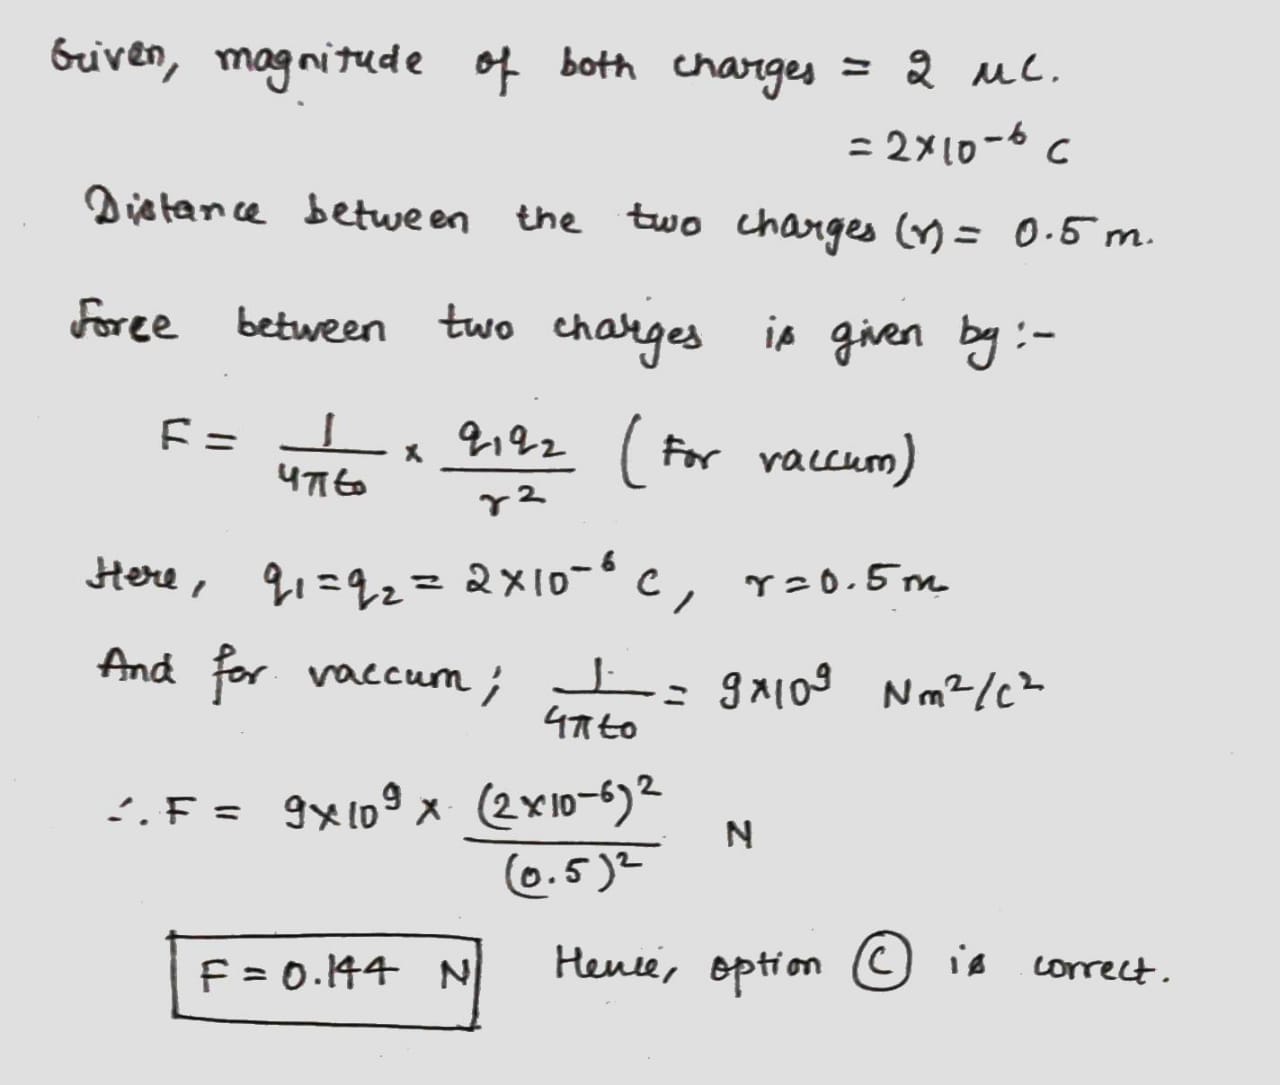 Given, magnitude of both charges = 2 μC.
= 2×10⁻⁶ C
Distance between the two charges (r) = 0.5 m.
Force between two charges is given by :-
F = 1/4πε₀ × q₁q₂/r² (For vaccum)
Here, q₁=q₂ = 2×10⁻⁶ C, r=0.5m
And for vaccum; 1/4πε₀ = 9×10⁹ Nm²/C²
∴ F = 9×10⁹ × (2×10⁻⁶)²/(0.5)² N
F = 0.144 N Hence, option Ⓒ is correct.